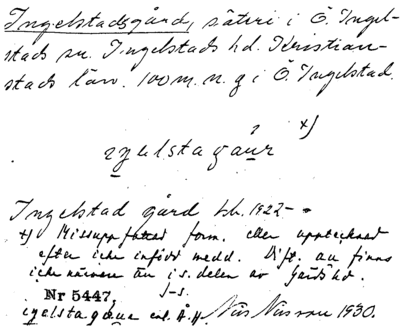 Ingelstadsgård, säteri i Ö. Ingel-
stads sn. Ingelstads hd. Kristian-
stads län. 100 m. n. g i Ö. Ingelstad.
x)
Ingelstad gård hb. 1922 -
x) Missuppfattad form. eller upptecknad
efter icke infödd medd. Dift. au finns
icke närmare än i s. delen av Gärds hd.
Nr 5447. J-s.
enl. Å. H. Nils Nilsson 1930.